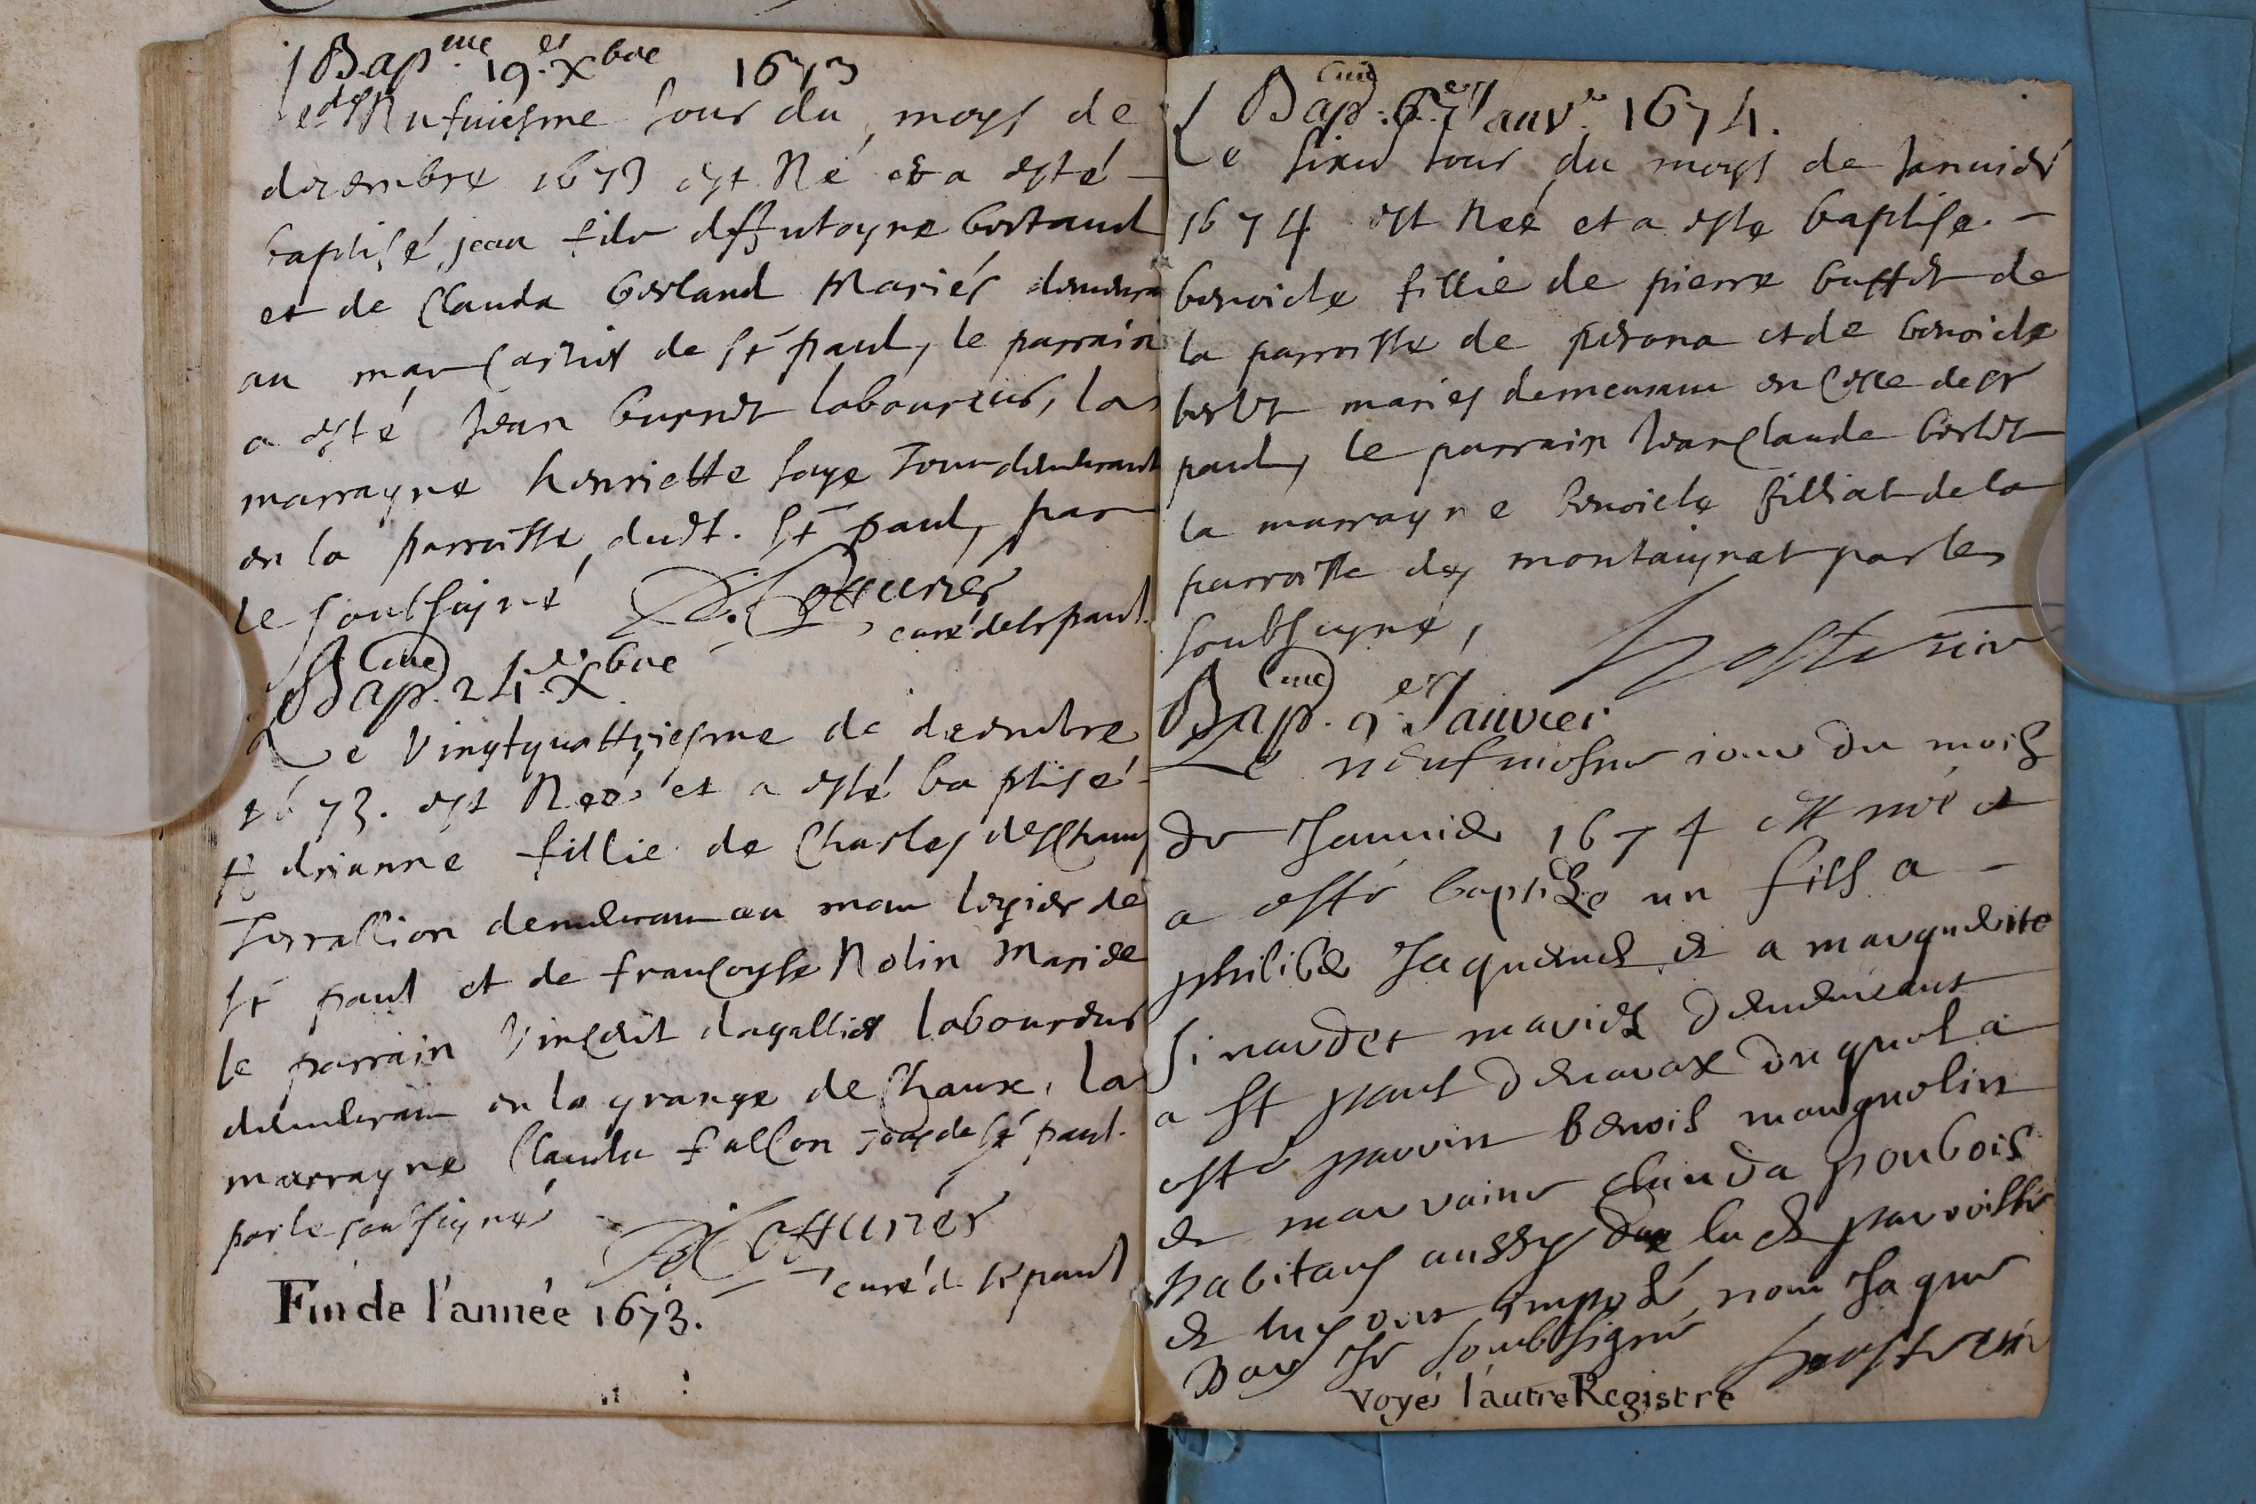 Bap.me 19.e Xbre 1673
Le dixNufuiesme Jour du moys de
decembre 1673 est Né et a esté
baptisé jean filz d'Antoyne bertaud
et de Clauda berland Mariés demeura
au mas de St paul, le parrain
a esté Jean burnet laboureur, la
marrayne henriette saye Tous demeurant
en la parroisse dudt. St paul, par
le soubsigné
curé de St paul.
Bap.me 24.e Xbre
Le vingtquattriesme de decembre
1673. est Neé et a esté baptisé
Adrianne fillie de Charles deschamps
demeurant au mas de
St paul et de françoyse Nolin Mariés
le parrain Vincent dagallier laboureur
demeurant en la grange de Chaux, la
marrayne Clauda fallcon Tous de St paul.
par le soubsigné
curé de St paul
Fin de l'année 1673.
Bap.me 6.e Janv.er 1674.
Le sixie Jour du moys de Januier
1674 est Neé et a este baptise.
benoicte fillie de pierre buffet de
la parroisse de perona et de benoicte
berlet maries demeurant en Cesse de St
paul, le parrain Jean Claude berlet
la marrayne benoicte filliat de la
parroisse de montaignat par les
soubsigné,
Bap.me 9.e Janvier
Le neufuiesme iour du mois
de Januier 1674 est né et
a esté baptizé un fils a
philibe Jaquemet et a marguerite
Siraudet mariez demeurant
a St paul de uarax duquel a
esté parrin benois mauguelin
et marraine clauda poubois
habitans aussy de lad parroisse
et luy ont imposé nom Jaque
par Je soubsigné
voyés l'autre Registre